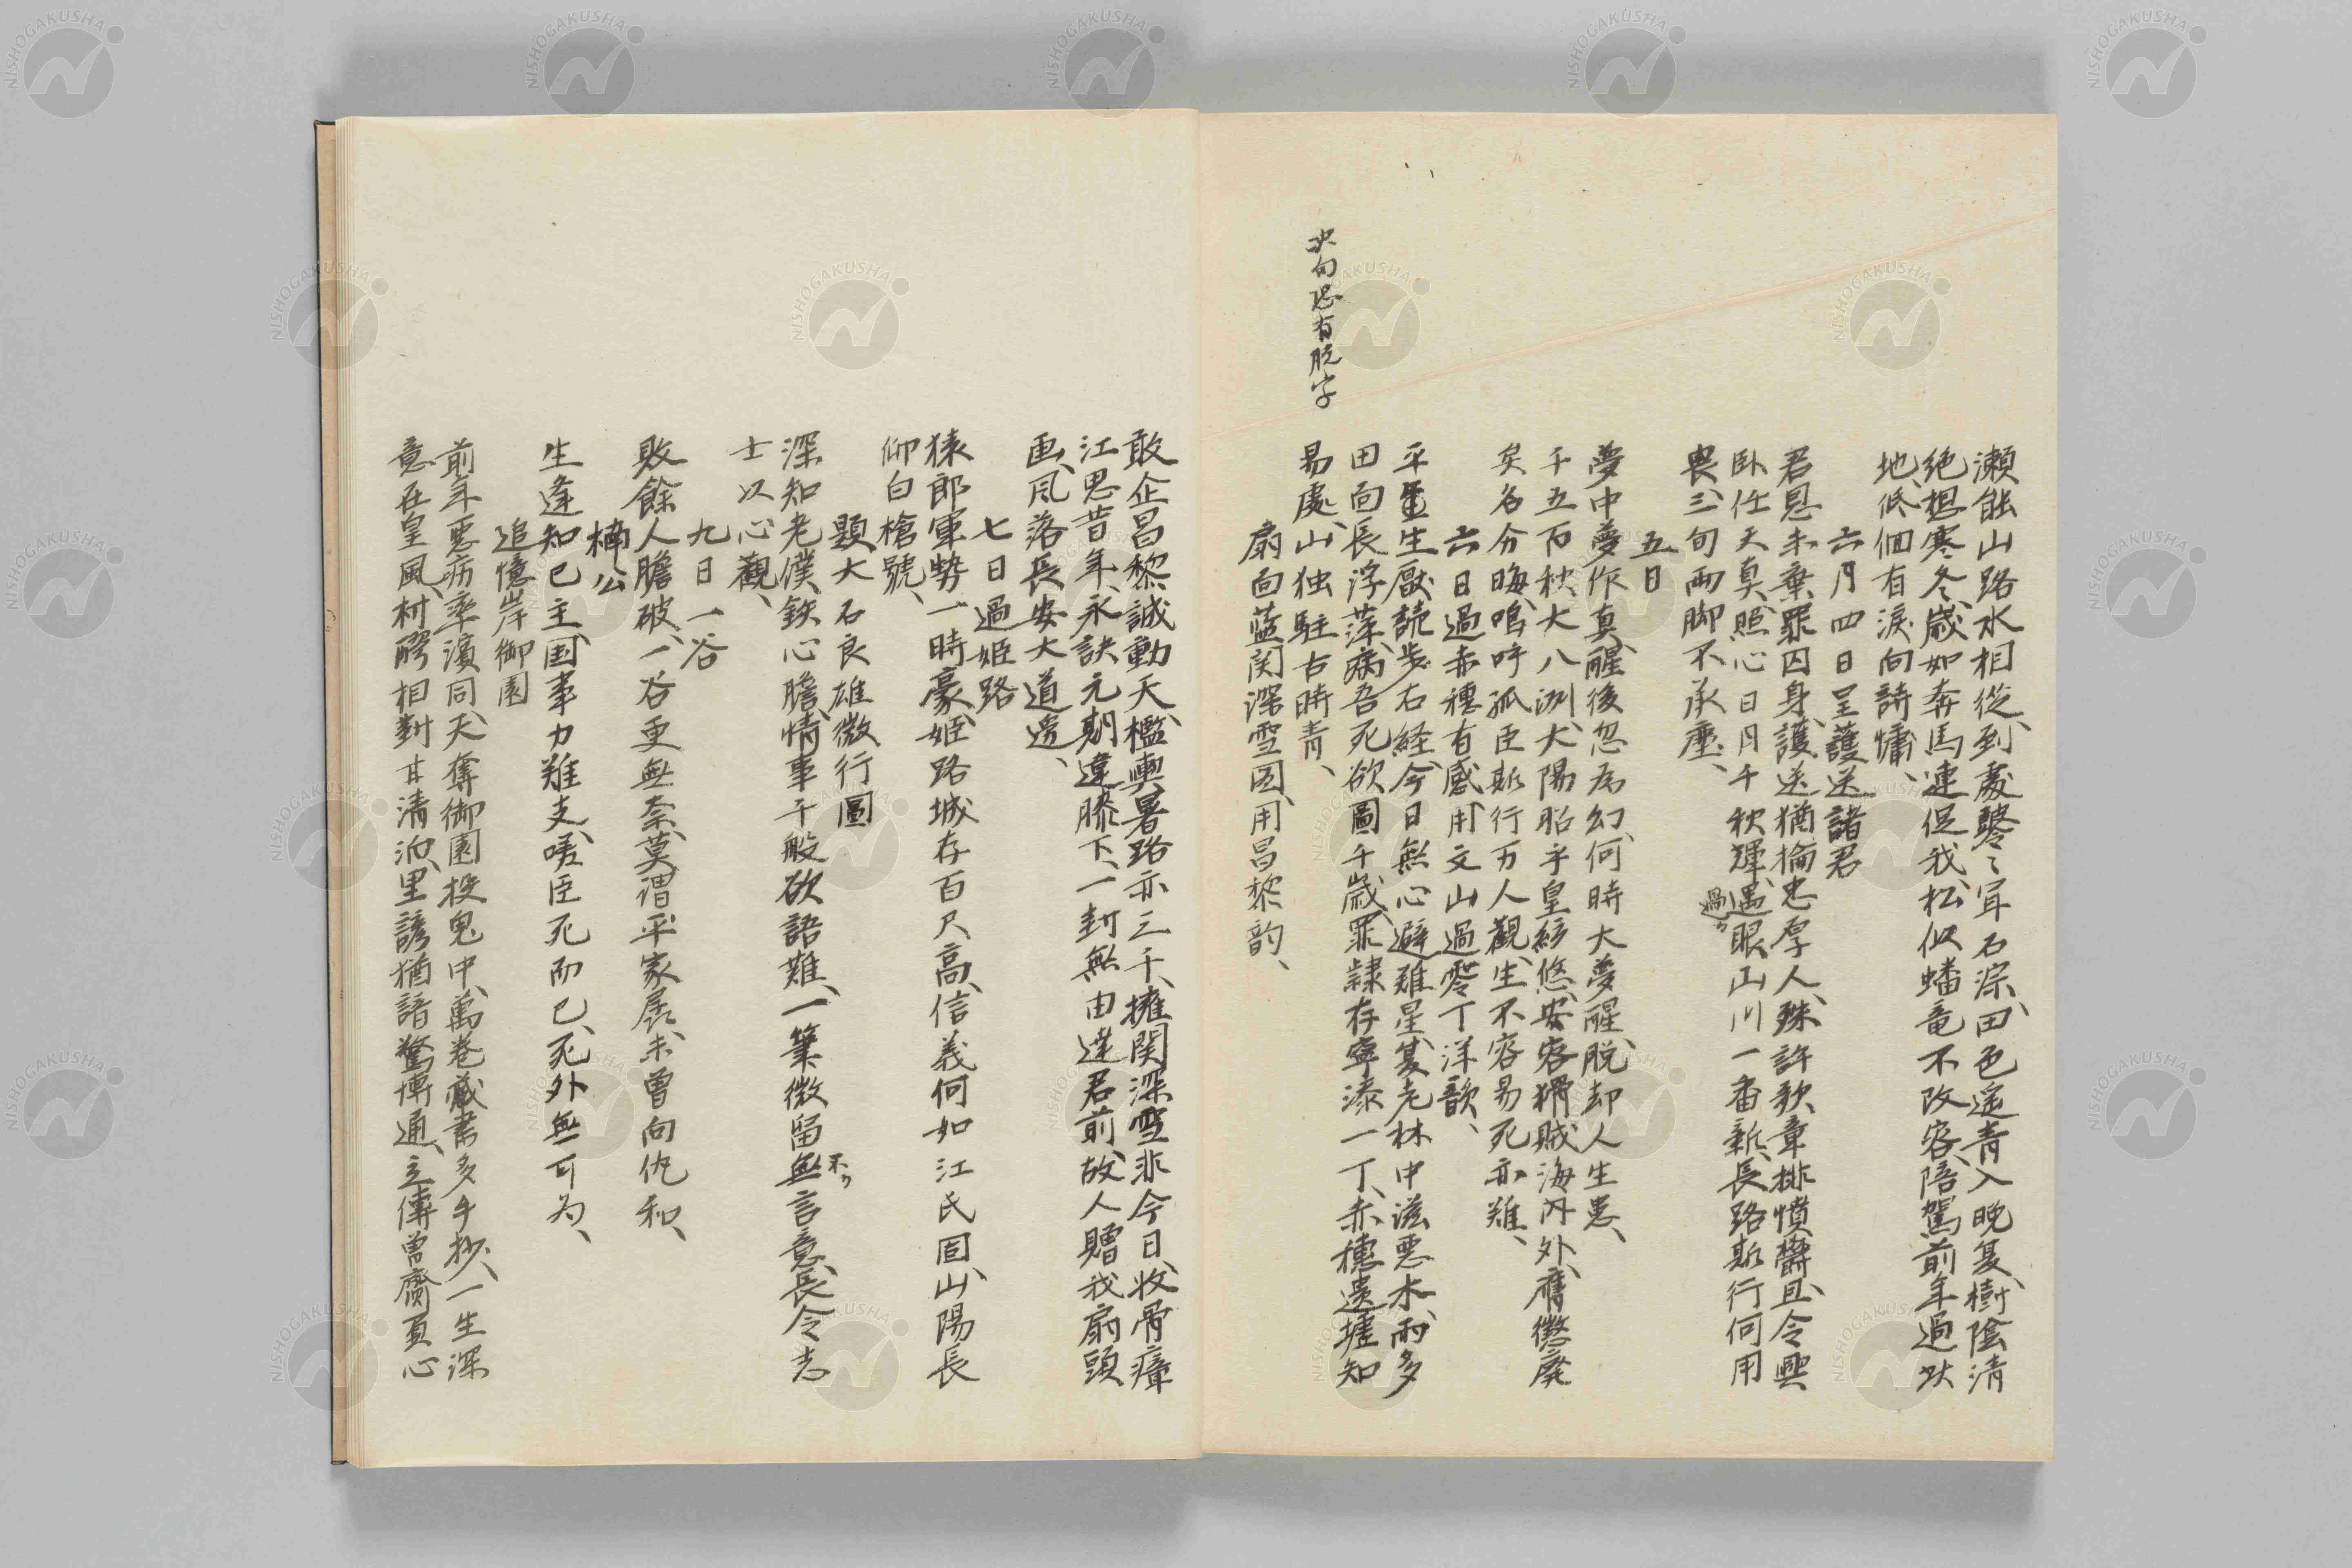 瀬能山路水相從、到處鼕〻耳石淙、田色遙青入晩夏、樹陰清
絶想寒冬、歳如奔馬連促我、松似蟠竜不改容、陪駕前年過此
地、低佪有涙向詩慵、
六月四日呈護送諸君
君恩未棄罪囚身、護送猶掄忠厚人、殊許歌章排憤欝、且令輿
臥任天真、照心日月千秋輝、遇眼山川一番新、長路斯行何用
過カ
畏、三旬両脚不承塵、
五日
夢中夢作真、醒後忽為幻、何時大夢醒、脱却人生患、
千五百秋大八洲、大陽昭乎皇統悠、安容猾賊海内外、膺懲廃
矣名分晦、嗚呼孤臣斯行万人觀、生不容易死亦難、
六日過赤穂有感、用文山過零丁洋韻、
平生厭読歩右経、今日無心避難星、夏老林中滋悪木、雨多
田面長浮萍、病吾死欲圖千歳、罪隷存寧添一丁、赤穂遺墟知
次句恐有脱字
易處、山独駐古時青、
扇面藍関深雪図、用昌黎韵、
敢企昌黎誠動天、檻輿暑路亦三千、擁関深雪非今日、收骨瘴
江思昔年、永訣元期違膝下、一封無由達君前、故人贈我扇頭
画、風落長安大道邊、
七日過姫路
猿郎軍勢一時豪、姫路城存百尺高、信義何如江氏固、山陽長
仰白槍號、
題大石良雄微行圖
深知老僕鉄心膽、情事千般欲語難、一筆微留無言意、長令志
不カ
士以心觀、
九日一谷
敗餘人膽破、一谷更無奈、莫謂平家孱、未曾向仇和、
楠公
生逢知已主、国事力難支、嗟臣死而已、死外無可为、
追憶岸御園
前年悪疠率濱同、天奪御園投鬼中、萬巻蔵書多手抄、一生深
意在皇風、村醪相對甘清泊、里諺猶諳驚博通、立傳曽齎頁心